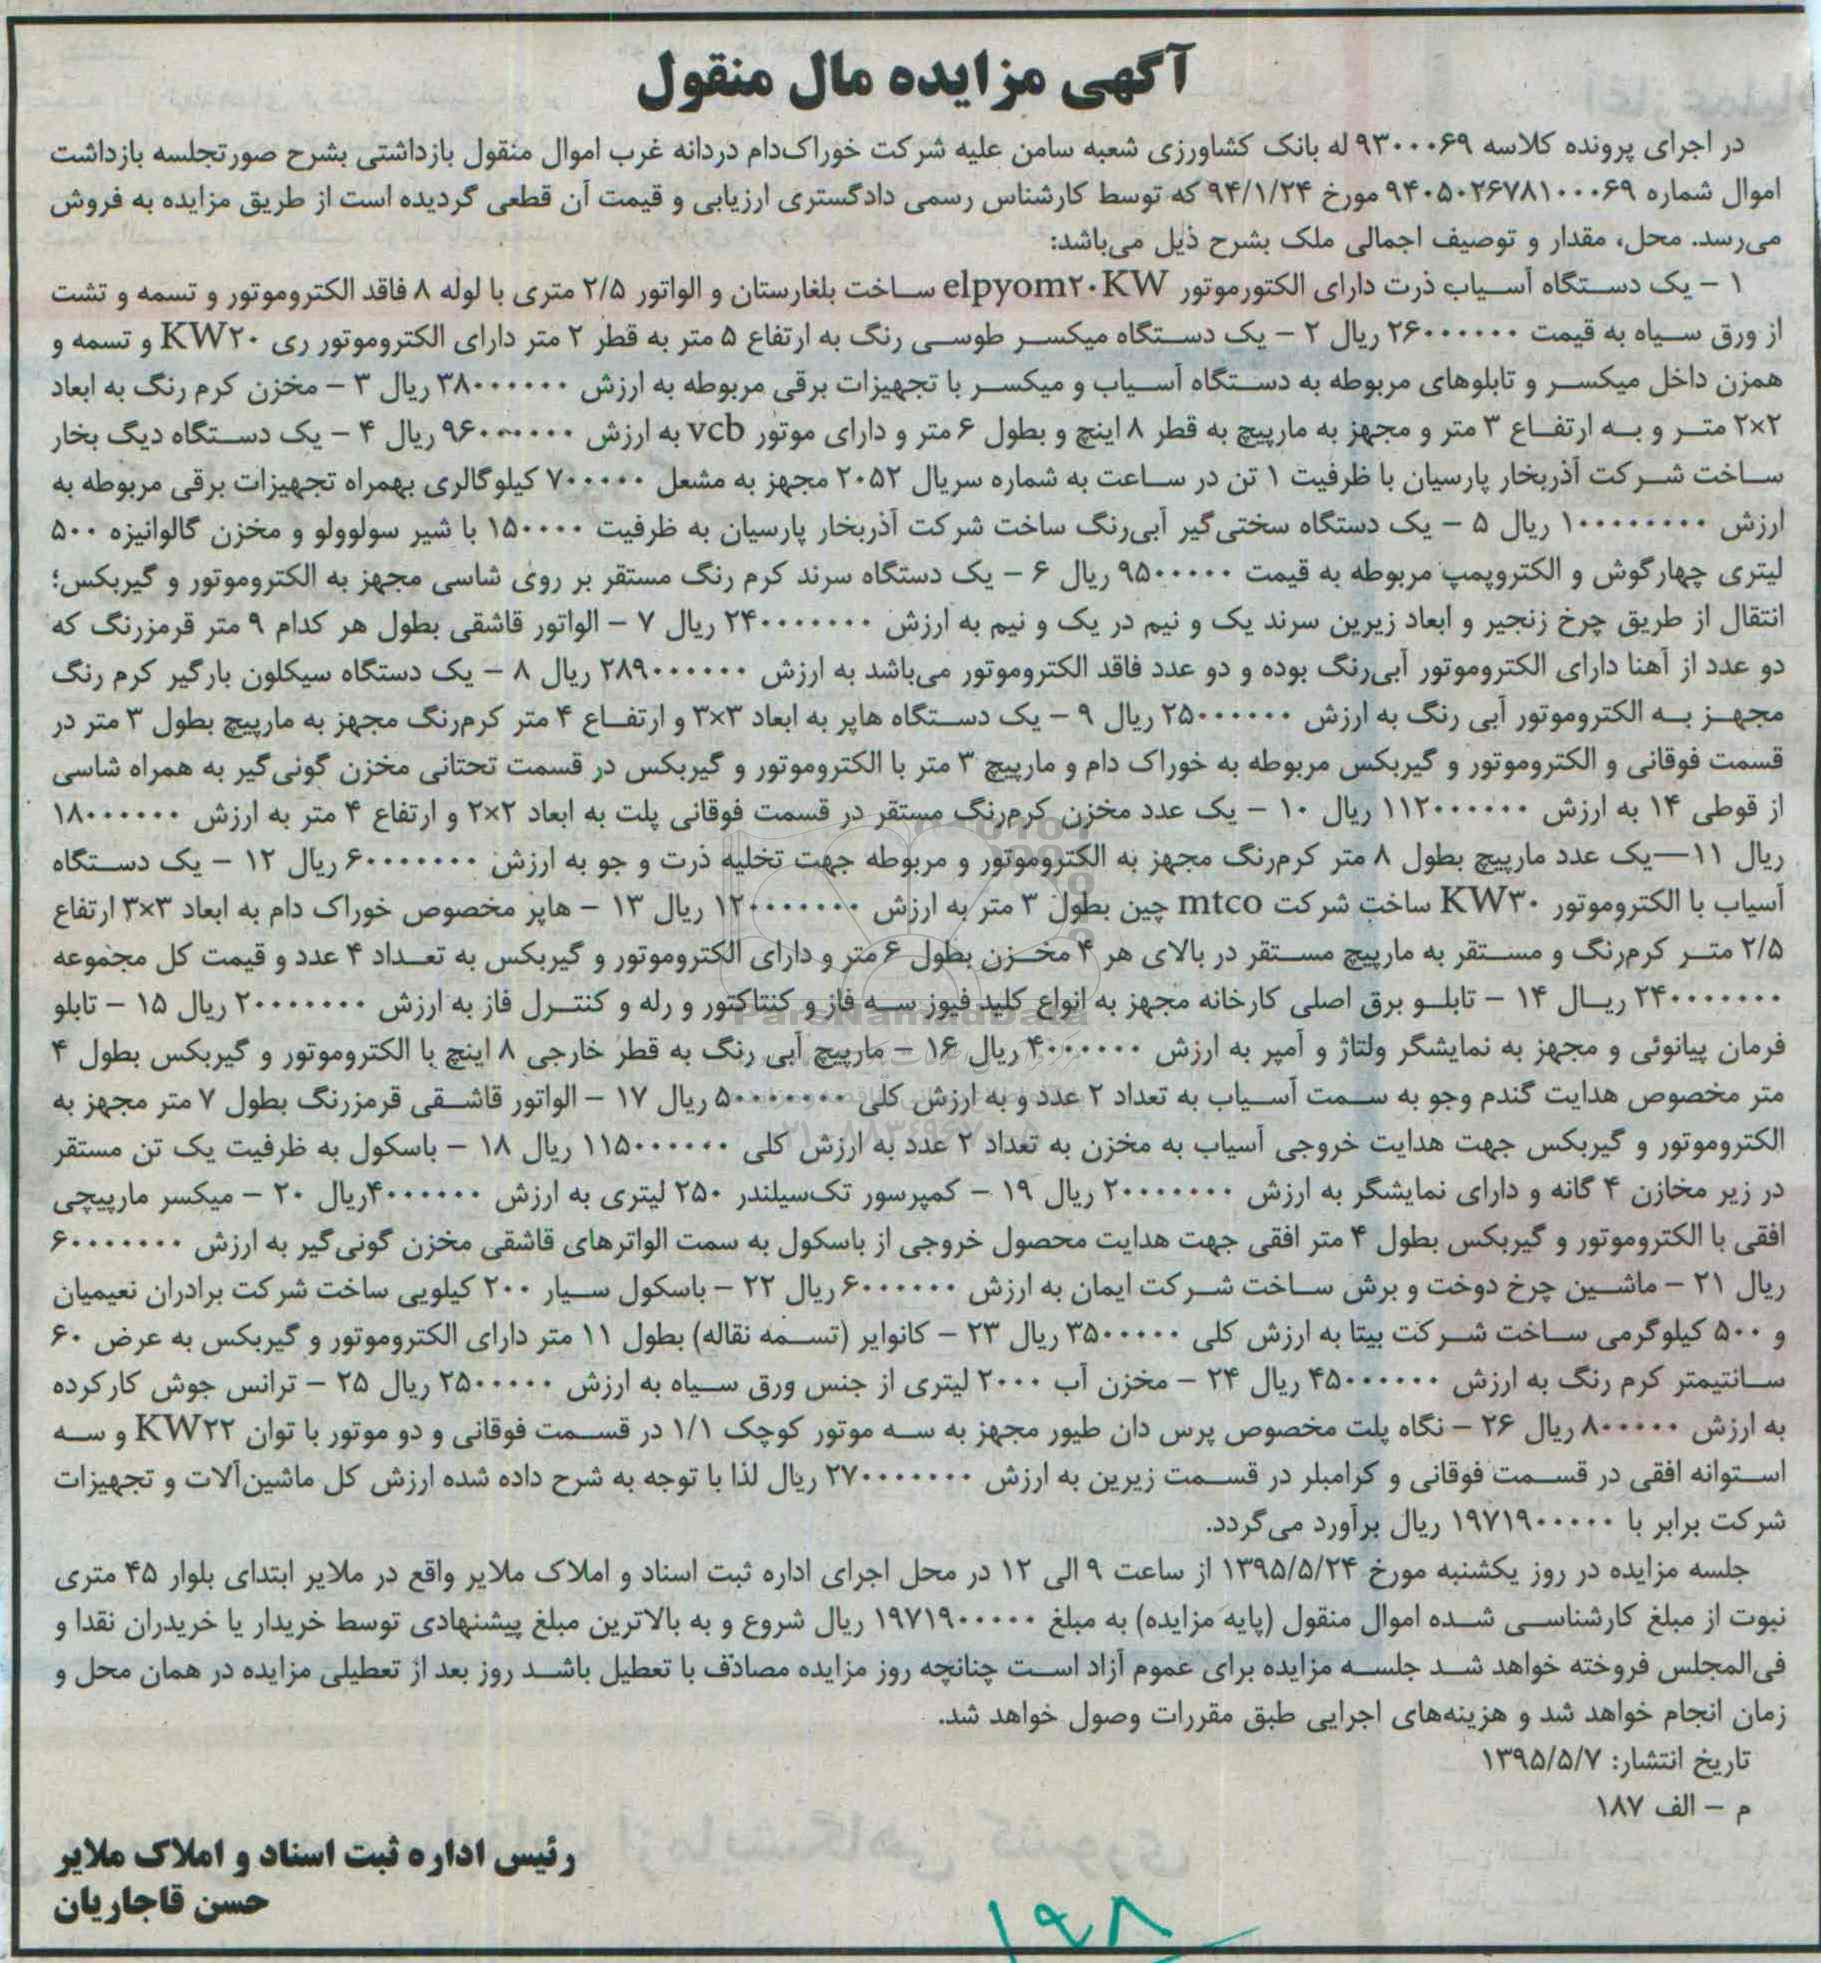 آگهی مزایده مال منقول
در اجرای پرونده کلاسه ۹۳۰۰۰۶۹ له بانک کشاورزی شعبه سامن علیه شرکت خوراک‌دام دردانه غرب اموال منقول بازداشتی بشرح صورتجلسه بازداشت
اموال شماره ۹۴۰۵۰۲۶۷۸۱۰۰۰۶۹ مورخ ۹۴/۱/۲۴ که توسط کارشناس رسمی دادگستری ارزیابی و قیمت آن قطعی گردیده است از طریق مزایده به فروش
می‌رسد. محل، مقدار و توصیف اجمالی ملک بشرح ذیل می‌باشد:
۱ – یک دستگاه آسیاب ذرت دارای الکتورموتور elpyom۲۰KW ساخت بلغارستان و الواتور ۲/۵ متری با لوله ۸ فاقد الکتروموتور و تسمه و تشت
از ورق سیاه به قیمت ۲۶۰۰۰۰۰۰ ریال ۲ – یک دستگاه میکسر طوسی رنگ به ارتفاع ۵ متر به قطر ۲ متر دارای الکتروموتور ری KW۲۰ و تسمه و
همزن داخل میکسر و تابلوهای مربوطه به دستگاه آسیاب و میکسر با تجهیزات برقی مربوطه به ارزش ۳۸۰۰۰۰۰۰ ریال ۳ – مخزن کرم رنگ به ابعاد
۲×۲ متر و به ارتفاع ۳ متر و مجهز به مارپیچ به قطر ۸ اینچ و بطول ۶ متر و دارای موتور vcb به ارزش ۹۶۰۰۰۰۰۰ ریال ۴ – یک دستگاه دیگ بخار
ساخت شرکت آذربخار پارسیان با ظرفیت ۱ تن در ساعت به شماره سریال ۲۰۵۲ مجهز به مشعل ۷۰۰۰۰۰ کیلوگالری بهمراه تجهیزات برقی مربوطه به
ارزش ۱۰۰۰۰۰۰۰۰ ریال ۵ – یک دستگاه سختی‌گیر آبی‌رنگ ساخت شرکت آذربخار پارسیان به ظرفیت ۱۵۰۰۰۰ با شیر سولوولو و مخزن گالوانیزه ۵۰۰
لیتری چهارگوش و الکتروپمپ مربوطه به قیمت ۹۵۰۰۰۰۰ ریال ۶ – یک دستگاه سرند کرم رنگ مستقر بر روی شاسی مجهز به الکتروموتور و گیربکس؛
انتقال از طریق چرخ زنجیر و ابعاد زیرین سرند یک و نیم در یک و نیم به ارزش ۲۴۰۰۰۰۰۰۰ ریال ۷ – الواتور قاشقی بطول هر کدام ۹ متر قرمزرنگ که
دو عدد از آهنا دارای الکتروموتور آبی‌رنگ بوده و دو عدد فاقد الکتروموتور می‌باشد به ارزش ۲۸۹۰۰۰۰۰۰ ریال ۸ – یک دستگاه سیکلون بارگیر کرم رنگ
مجهز به الکتروموتور آبی رنگ به ارزش ۲۵۰۰۰۰۰۰ ریال ۹ – یک دستگاه هاپر به ابعاد ۳×۳ و ارتفاع ۴ متر کرم‌رنگ مجهز به مارپیچ بطول ۳ متر در
قسمت فوقانی و الکتروموتور و گیربکس مربوطه به خوراک دام و مارپیچ ۳ متر با الکتروموتور و گیربکس در قسمت تحتانی مخزن گونی‌گیر به همراه شاسی
از قوطی ۱۴ به ارزش ۱۱۲۰۰۰۰۰۰ ریال ۱۰ – یک عدد مخزن کرم‌رنگ مستقر در قسمت فوقانی پلت به ابعاد ۲×۲ و ارتفاع ۴ متر به ارزش ۱۸۰۰۰۰۰۰
ریال ۱۱—یک عدد مارپیچ بطول ۸ متر کرم‌رنگ مجهز به الکتروموتور و مربوطه جهت تخلیه ذرت و جو به ارزش ۶۰۰۰۰۰۰۰ ریال ۱۲ – یک دستگاه
آسیاب با الکتروموتور KW۳۰ ساخت شرکت mtco چین بطول ۳ متر به ارزش ۱۲۰۰۰۰۰۰۰ ریال ۱۳ – هاپر مخصوص خوراک دام به ابعاد ۳×۳ ارتفاع
۲/۵ متر کرم‌رنگ و مستقر به مارپیچ مستقر در بالای هر ۴ مخزن بطول ۶ متر و دارای الکتروموتور و گیربکس به تعداد ۴ عدد و قیمت کل مجموعه
۲۴۰۰۰۰۰۰۰ ریال ۱۴ – تابلو برق اصلی کارخانه مجهز به انواع کلید فیوز سه فاز و کنتاکتور و رله و کنترل فاز به ارزش ۲۰۰۰۰۰۰۰ ریال ۱۵ – تابلو
فرمان پیانوئی و مجهز به نمایشگر ولتاژ و آمپر به ارزش ۴۰۰۰۰۰۰ ریال ۱۶ – مارپیچ آبی رنگ به قطر خارجی ۸ اینچ با الکتروموتور و گیربکس بطول ۴
متر مخصوص هدایت گندم وجو به سمت آسیاب به تعداد ۲ عدد و به ارزش کلی ۵۰۰۰۰۰۰۰ ریال ۱۷ – الواتور قاشقی قرمزرنگ بطول ۷ متر مجهز به
الکتروموتور و گیربکس جهت هدایت خروجی آسیاب به مخزن به تعداد ۲ عدد به ارزش کلی ۱۱۵۰۰۰۰۰۰ ریال ۱۸ – باسکول به ظرفیت یک تن مستقر
در زیر مخازن ۴ گانه و دارای نمایشگر به ارزش ۲۰۰۰۰۰۰۰ ریال ۱۹ – کمپرسور تک‌سیلندر ۲۵۰ لیتری به ارزش ۴۰۰۰۰۰۰ریال ۲۰ – میکسر مارپیچی
افقی با الکتروموتور و گیربکس بطول ۴ متر افقی جهت هدایت محصول خروجی از باسکول به سمت الواترهای قاشقی مخزن گونی‌گیر به ارزش ۶۰۰۰۰۰۰۰
ریال ۲۱ – ماشین چرخ دوخت و برش ساخت شرکت ایمان به ارزش ۶۰۰۰۰۰۰ ریال ۲۲ – باسکول سیار ۲۰۰ کیلویی ساخت شرکت برادران نعیمیان
و ۵۰۰ کیلوگرمی ساخت شرکت بیتا به ارزش کلی ۳۵۰۰۰۰۰ ریال ۲۳ – کانوایر (تسمه نقاله) بطول ۱۱ متر دارای الکتروموتور و گیربکس به عرض ۶۰
سانتیمتر کرم رنگ به ارزش ۴۵۰۰۰۰۰۰ ریال ۲۴ – مخزن آب ۲۰۰۰ لیتری از جنس ورق سیاه به ارزش ۲۵۰۰۰۰۰ ریال ۲۵ – ترانس جوش کارکرده
به ارزش ۸۰۰۰۰۰ ریال ۲۶ – نگاه پلت مخصوص پرس دان طیور مجهز به سه موتور کوچک ۱/۱ در قسمت فوقانی و دو موتور با توان KW۲۲ و سه
استوانه افقی در قسمت فوقانی و کرامبلر در قسمت زیرین به ارزش ۲۷۰۰۰۰۰۰۰ ریال لذا با توجه به شرح داده شده ارزش کل ماشین‌آلات و تجهیزات
شرکت برابر با ۱۹۷۱۹۰۰۰۰۰ ریال برآورد می‌گردد.
جلسه مزایده در روز یکشنبه مورخ ۱۳۹۵/۵/۲۴ از ساعت ۹ الی ۱۲ در محل اجرای اداره ثبت اسناد و املاک ملایر واقع در ملایر ابتدای بلوار ۴۵ متری
نبوت از مبلغ کارشناسی شده اموال منقول (پایه مزایده) به مبلغ ۱۹۷۱۹۰۰۰۰۰ ریال شروع و به بالاترین مبلغ پیشنهادی توسط خریدار یا خریدران نقدا و
فی‌المجلس فروخته خواهد شد جلسه مزایده برای عموم آزاد است چنانچه روز مزایده مصادف با تعطیل باشد روز بعد از تعطیلی مزایده در همان محل و
زمان انجام خواهد شد و هزینه‌های اجرایی طبق مقررات وصول خواهد شد.
تاریخ انتشار: ۱۳۹۵/۵/۷
م – الف ۱۸۷
رئیس اداره ثبت اسناد و املاک ملایر
حسن قاجاریان
۱۹۸